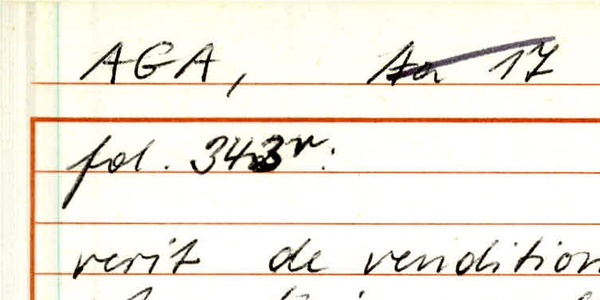 AGA, Aa 17
fol. 343r:
verit de vendition